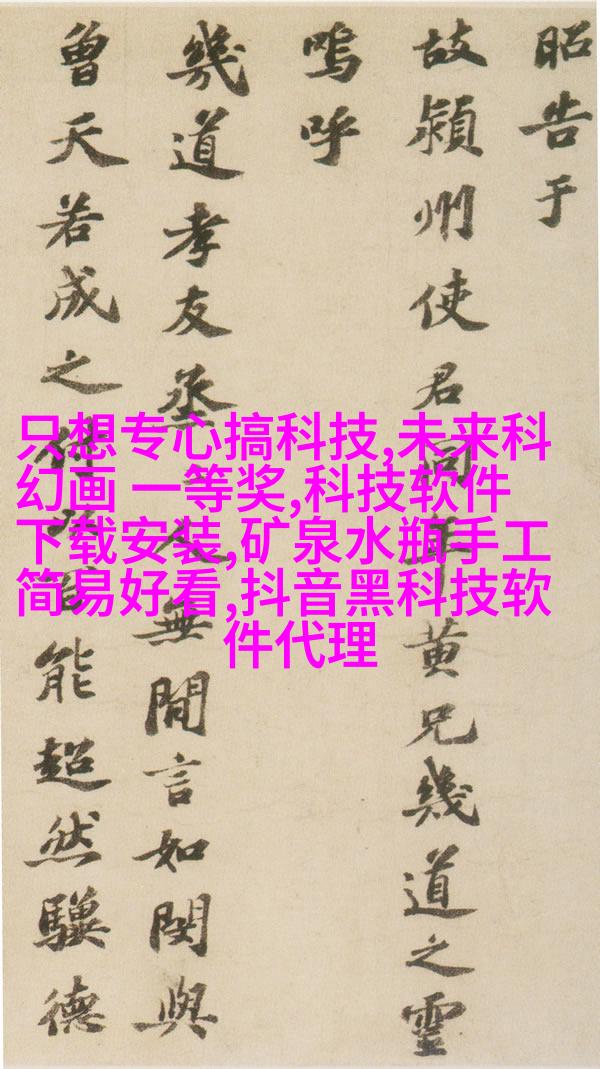 昭告于
故潁州使君同年黄兄幾道之靈
嗚呼
幾道孝友烝人無閒言如閔與
曾天若成之付百能超然驥德
只想专心搞科技,未来科
幻画 一等奖,科技软件
下载安装,矿泉水瓶手工
简易好看,抖音黑科技软
件代理